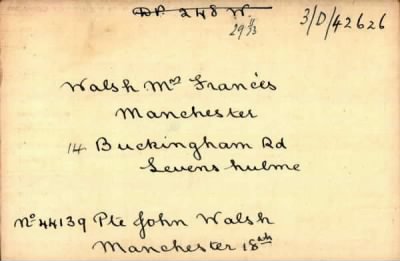 DP. 248 W.
29 11/33
3/D/42626
Walsh Mrs Francés
Manchester
14 Buckingham Rd
Levenshulme
No 44139 Pte John Walsh
Manchester 18th